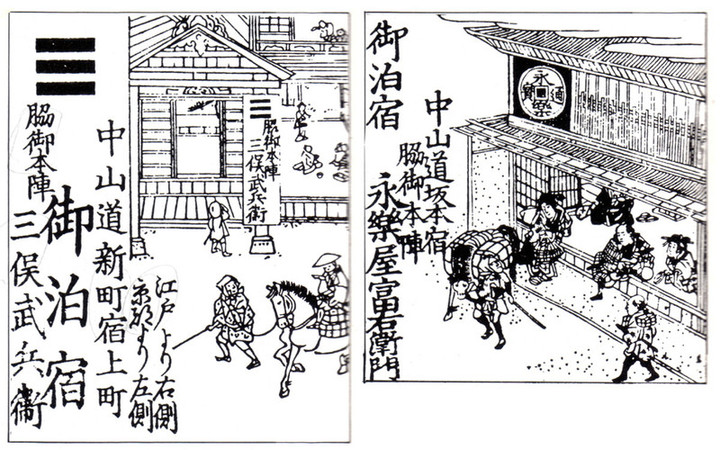 永樂通寳
中山道坂本宿
脇御本陣
御泊宿
永樂屋富右衛門
脇御本陣
三俣武兵衛
江戸より右側
京都より左側
中山道新町宿上町
御泊宿
脇御本陣
三俣武兵衛